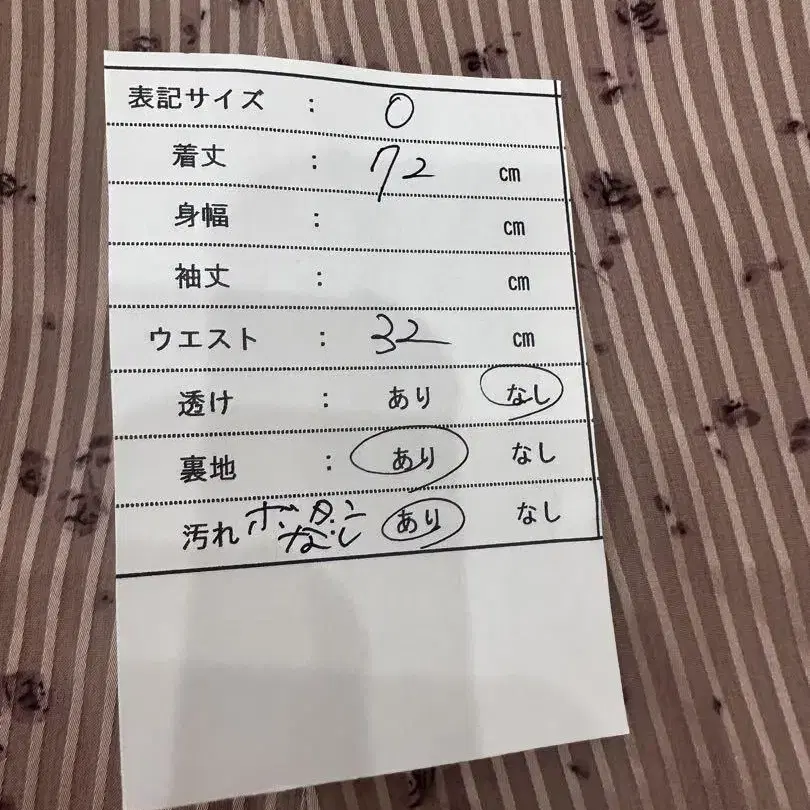 表記サイズ : 0
着丈 : 72 cm
身幅 : cm
袖丈 : cm
ウエスト : 32 cm
透け : あり なし
裏地 : あり なし
汚れ ボタン なし : あり なし